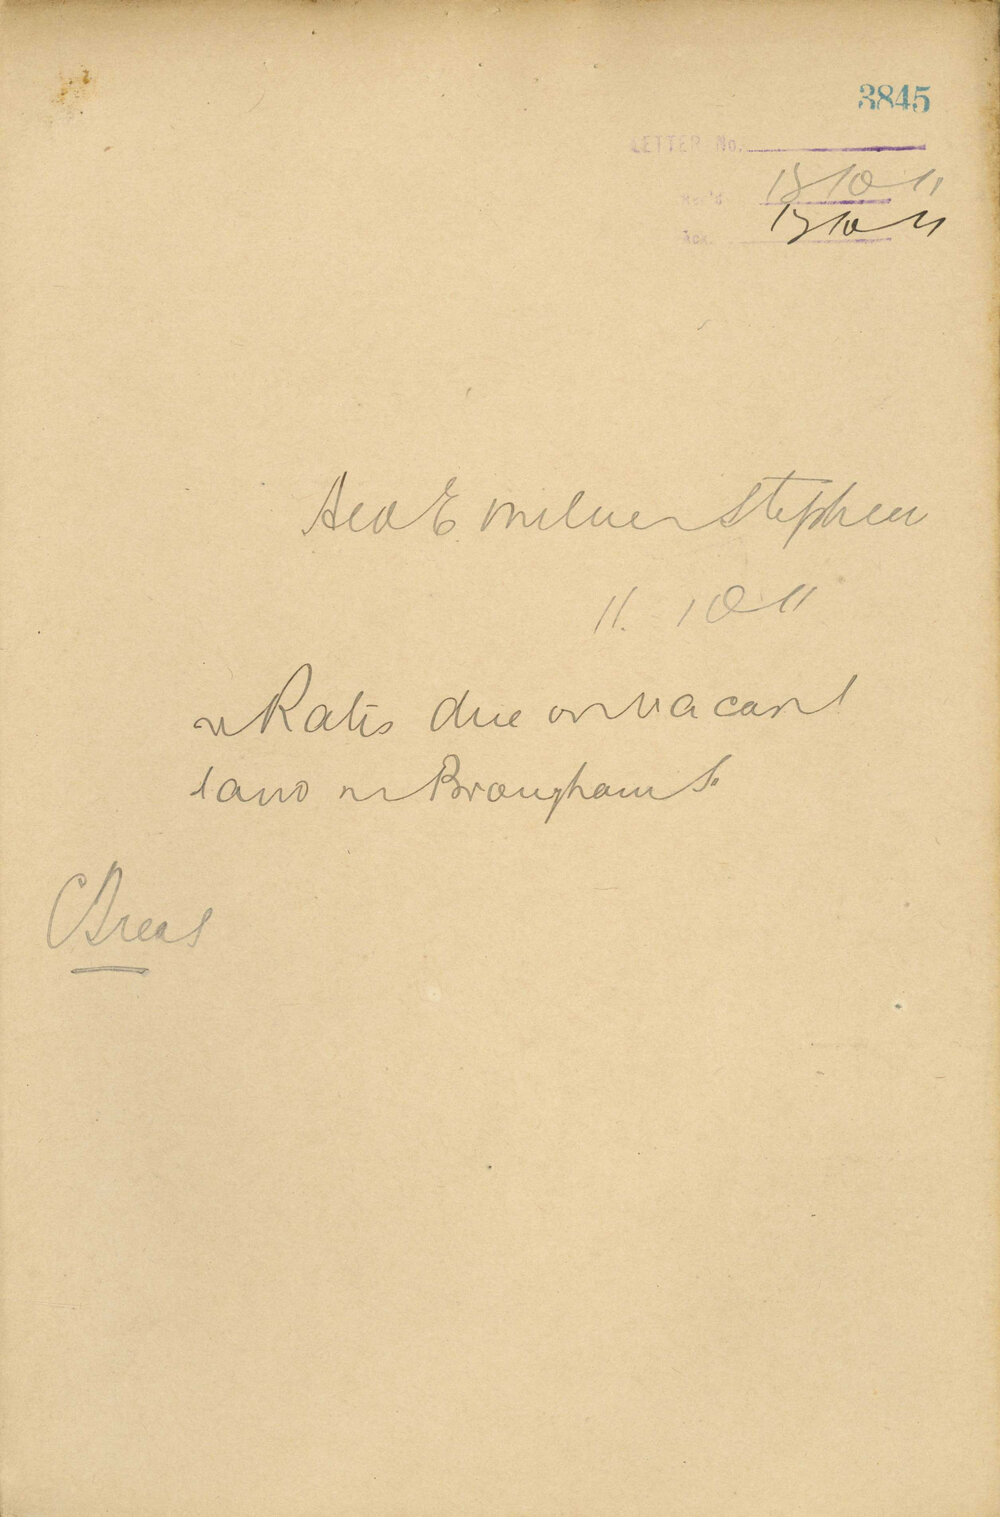 3845
LETTER No.
Rec'd 13/10/11
Ack. 13/10/11
Geo E. Milner Stephen
11. 10 11
re Rates due on vacant
land in Brougham St
C Treas